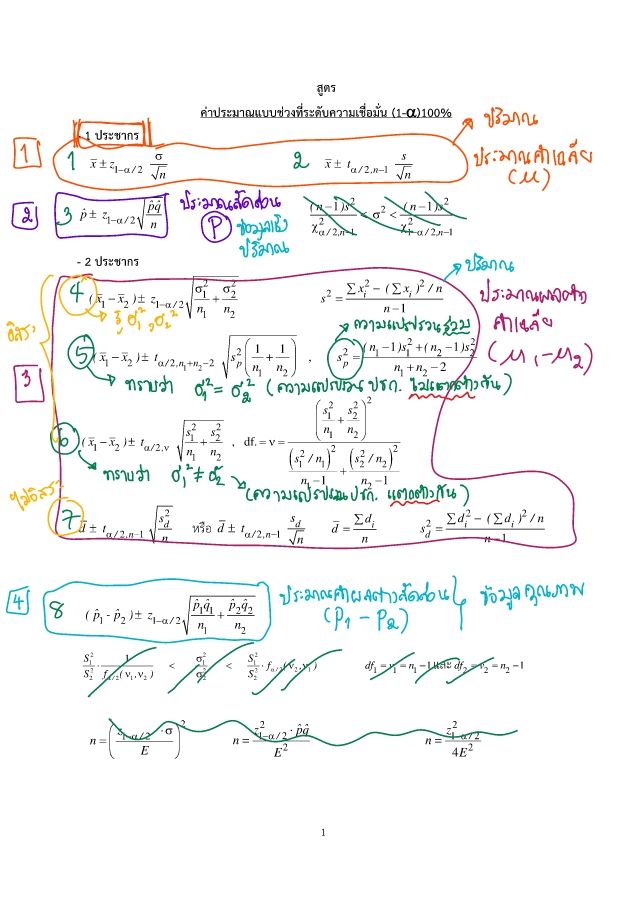 สูตร
ค่าประมาณแบบช่วงที่ระดับความเชื่อมั่น (1-α)100%
- 1 ประชากร
ปริมาณ
1
1 x̄ ± z_{1-α/2} σ/√n
2 x̄ ± t_{α/2,n-1} s/√n
ประมาณค่าเฉลี่ย
(μ)
2
3 p̂ ± z_{1-α/2} √(p̂q̂/n)
ประมาณสัดส่วน
P
ข้อมูลเชิง
ปริมาณ
(n-1)s²/χ²_{α/2,n-1} < σ² < (n-1)s²/χ²_{1-α/2,n-1}
- 2 ประชากร
ปริมาณ
อิสระ
4 (x̄₁ - x̄₂) ± z_{1-α/2} √(σ₁²/n₁ + σ₂²/n₂)
s² = (∑xᵢ² - (∑xᵢ)²/n)/(n-1)
รู้ σ₁², σ₂²
ประมาณผลต่าง
ค่าเฉลี่ย
(μ₁-μ₂)
ความแปรปรวนร่วม
3
5 (x̄₁ - x̄₂) ± t_{α/2,n₁+n₂-2} √(s_p²(1/n₁ + 1/n₂)) , s_p² = ((n₁-1)s₁² + (n₂-1)s₂²)/(n₁+n₂-2)
ทราบว่า σ₁² = σ₂² (ความแปรปรวน ปชก. ไม่แตกต่างกัน)
6 (x̄₁ - x̄₂) ± t_{α/2,ν} √(s₁²/n₁ + s₂²/n₂) , df. = ν = (s₁²/n₁ + s₂²/n₂)²/((s₁²/n₁)²/(n₁-1) + (s₂²/n₂)²/(n₂-1))
ทราบว่า σ₁² ≠ σ₂² (ความแปรปรวน ปชก. แตกต่างกัน)
ไม่อิสระ
7 d̄ ± t_{α/2,n-1} √(s_d²/n) หรือ d̄ ± t_{α/2,n-1} s_d/√n d̄ = ∑dᵢ/n s_d² = (∑dᵢ² - (∑dᵢ)²/n)/(n-1)
4
8 (p̂₁ - p̂₂) ± z_{1-α/2} √(p̂₁q̂₁/n₁ + p̂₂q̂₂/n₂)
ประมาณค่าผลต่างสัดส่วน
(P₁ - P₂)
ข้อมูลคุณภาพ
S₁²/S₂² · 1/f_{α/2(ν₁,ν₂)} < σ₁²/σ₂² < S₁²/S₂² · f_{α/2(ν₂,ν₁)} df₁ = ν₁ = n₁ -1 และ df₂ = ν₂ = n₂ -1
n = (z_{1-α/2} · σ/E)² n = z²_{1-α/2} · p̂q̂/E² n = z²_{1-α/2}/4E²
1